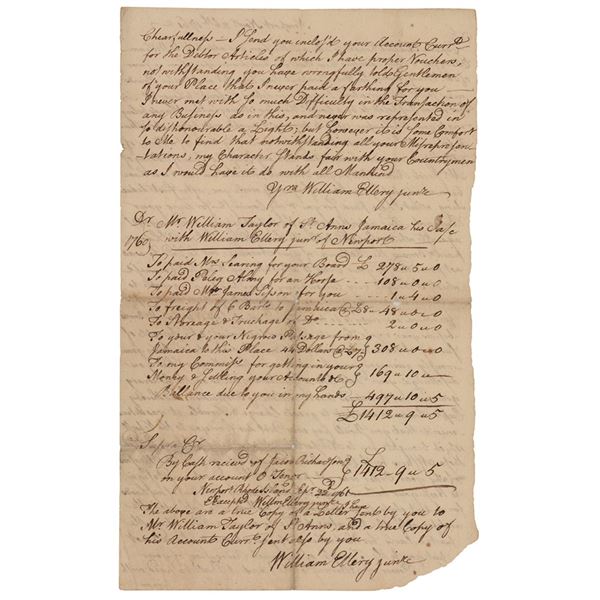 Chearfullness — I Send you inclos'd your Account Currt.
for the Debtor Articles of which I have proper Vouchers,
notwithstanding you have wrongfully told Gentlemen
of your Place that I never paid a farthing for you
I never met with So much Difficulty in the Transaction of
any Business as in this, and never was represented in
So dishonourable a Light; but however it is Some Comfort
to Me to find that notwithstanding all your Misrepresen-
tations, my Character Stands fair with your Countrymen
as I would have it do with all Mankind
Yrs William Ellery junr.
Dr. Mr. William Taylor of St. Anns Jamaica his
1760 with William Ellery junr. of Newport
To paid Mrs Searing for your Board £ 278 " 5 " 0
To paid Peleg for an Horse ---- 108 " 0 " 0
To paid Mr. James for you - 1 " 4 " 0
To freight of 6 Barls. to Jamaica @ £8 - 48 " 0 " 0
To & Truckage of Do ---- 2 " 0 " 0
To your & your Negros Passage from
Jamaica to this Place 44 Dollars @ £7 } 308 " 0 " 0
To my Commiss. for getting in your
Money & Settling your Accounts &c } 169 " 10 "
Ballance due to you in my hands - 497 " 10 " 5
£1412 " 9 " 5
Supra Cr
By Cash recieved of Jacob Richardson
on your account O Tenor } £1412 - 9 " 5
Newport Rhode Island 22 1761
Excepted Willm Ellery junr.
The above are a true Copy of a Letter Sent by you to
Mr. William Taylor of St. Anns, and a true Copy of
his Account Currt. Sent also by you
William Ellery junr.